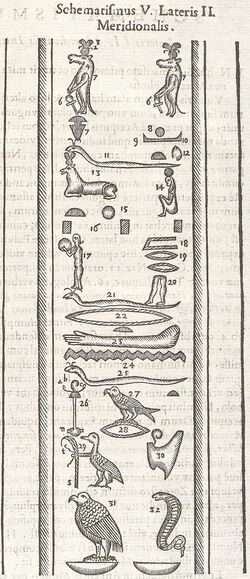 Schematiſmus V. Lateris II.
Meridionalis.
7
7
6
8
9
10
11
12
13
14
15
16
17
18
19
20
21
22
23
24
25
a b
26
27
28
n
29
30
s
31
32